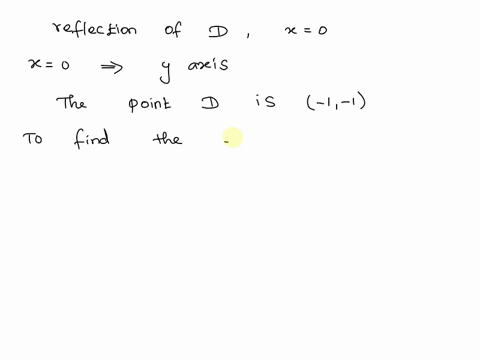 reflection of D, x = 0
x = 0 ⇒ y axis
The point D is (-1,-1)
To find the